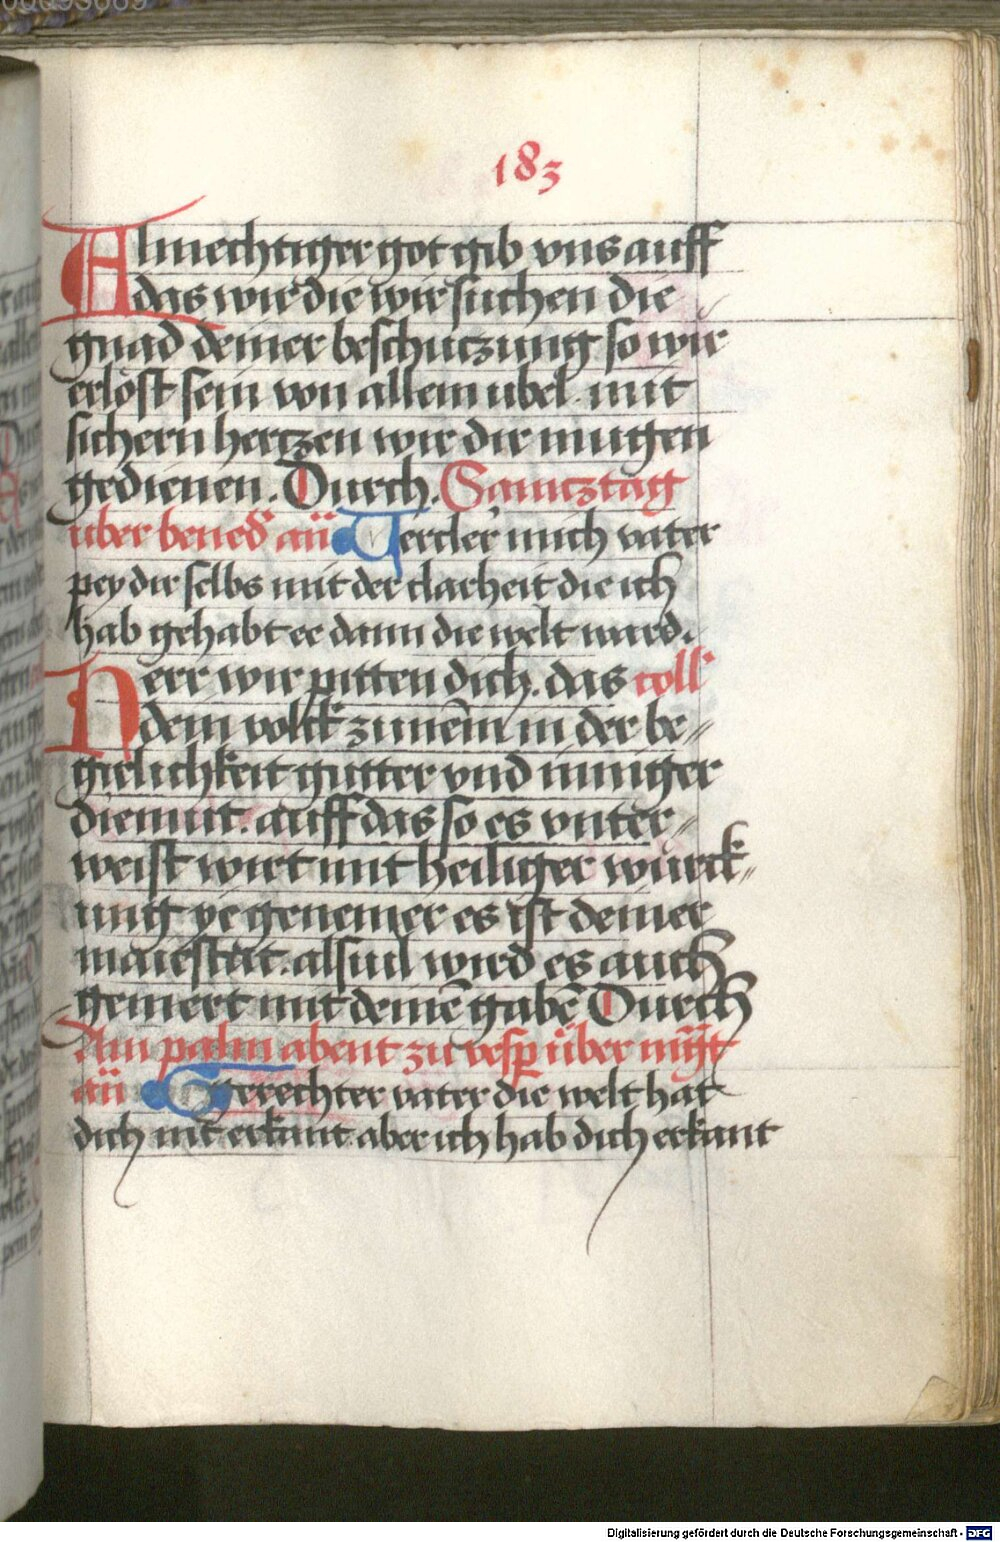 183
Almechtiger got gib vns auff
das wir die wir suchen die
gnad deiner beschutzung so wir
erlöst sein von allem ubel. mit
sichern hertzen wir dir mugen
gedienen. Durch. Samtztag
über bened añ Vercler mich vater
pey dir selbs mit der clarheit die ich
hab gehabt ee dann die welt ward.
Herr wir pitten dich. das coll
dem volck zunem̄ in der be„
girlichkeit gutter vnd inniger
diemut. auff das so es vnter„
weist wirt mit heiliger würck„
ung ye genemer es ist deiner
maiestat. alsuil wird es auch
gemert mit deinē gabē Durch
Am palm abent zu vesp über
añ Gerechter vater die welt hat
dich nit erkant aber ich hab dich erkant
Digitalisierung gefördert durch die Deutsche Forschungsgemeinschaft - DFG